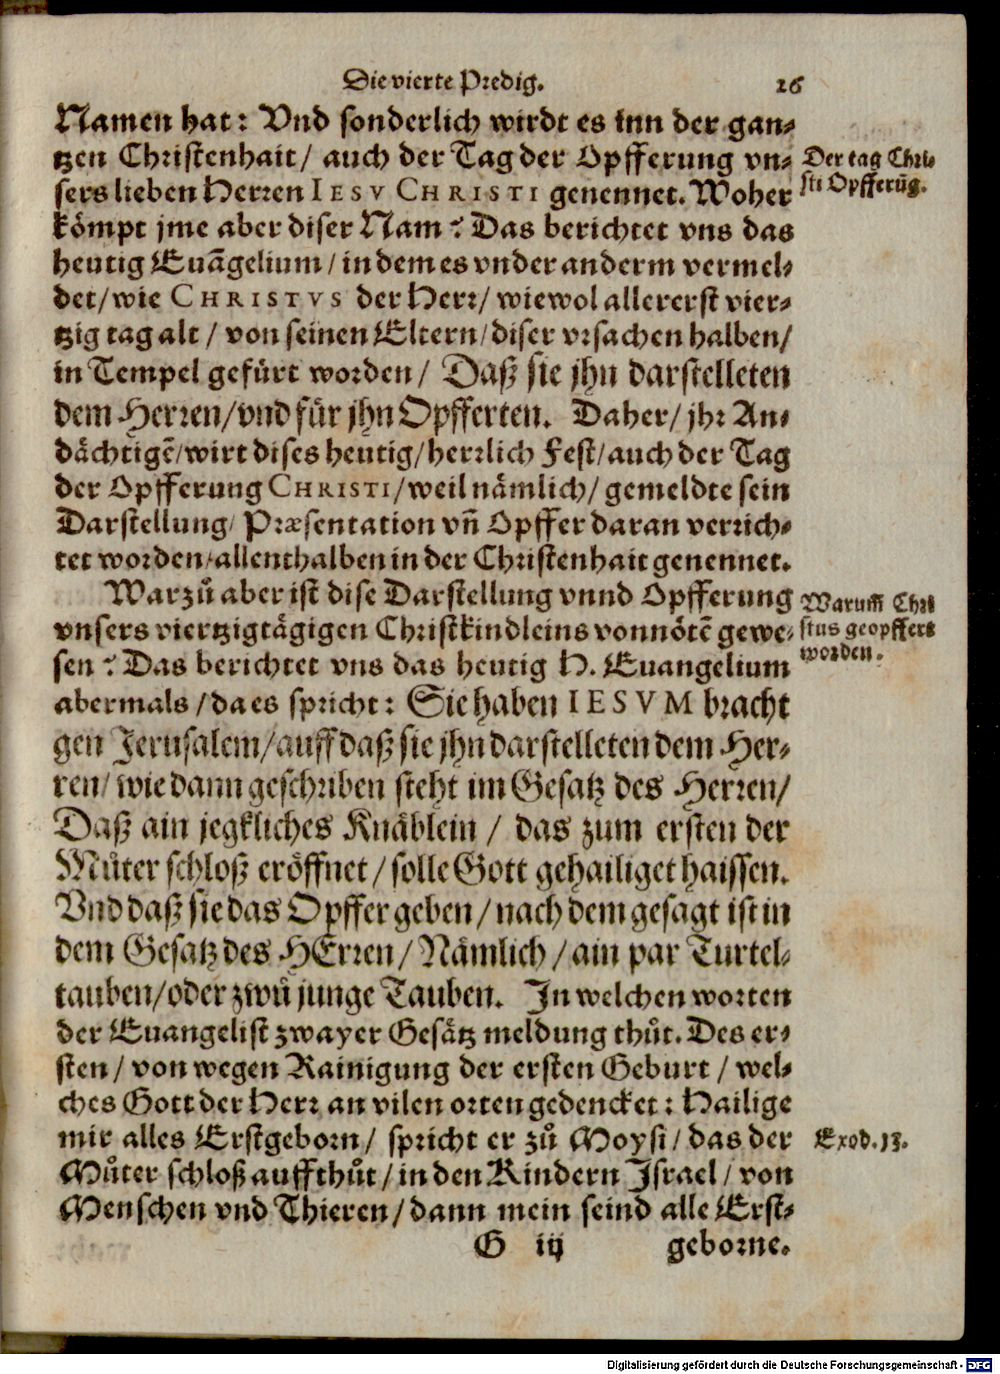 Die vierte Predig. 26
Namen hat: Vnd sonderlich wirdt es inn der gan-
tzen Christenhait/ auch der Tag der Opfferung vn-
sers lieben Herren IESV CHRISTI genennet. Woher
kömpt jme aber diser Nam? Das berichtet vns das
heutig Euãgelium/ in dem es vnder anderm vermel-
det/ wie CHRISTVS der Herr/ wiewol allererst vier-
tzig tag alt/ von seinen Eltern/ diser vrsachen halben/
in Tempel gefürt worden/ Daß sie jhn darstelleten
dem Herren/ vnd für jhn Opfferten. Daher/ jhr An-
dächtigẽ/ wirt dises heutig/ herrlich Fest/ auch der Tag
der Opfferung CHRISTI/ weil nämlich/ gemeldte sein
Darstellung/ Præsentation vñ Opffer daran verrich-
tet worden/ allenthalben in der Christenhait genennet.
Warzů aber ist dise Darstellung vnnd Opfferung
vnsers viertzigtägigen Christkindleins vonnötẽ gewe-
sen? Das berichtet vns das heutig H. Euangelium
abermals/ da es spricht: Sie haben IESVM bracht
gen Jerusalem/ auff daß sie jhn darstelleten dem Her-
ren/ wie dann geschriben steht im Gesatz des Herren/
Daß ain jegkliches Knäblein/ das zum ersten der
Můter schloß eröffnet/ solle Gott gehailiget haissen.
Vnd daß sie das Opffer geben/ nach dem gesagt ist in
dem Gesatz des HErren/ Nämlich/ ain par Turtel-
tauben/ oder zwů junge Tauben. In welchen worten
der Euangelist zwayer Gesätz meldung thůt. Des er-
sten/ von wegen Rainigung der ersten Geburt/ wel-
ches Gott der Herr an vilen orten gedencket: Hailige
mir alles Erstgeborn/ spricht er zů Moysi/ das der
Můter schloß auffthůt/ in den Kindern Israel/ von
Menschen vnd Thieren/ dann mein seind alle Erst-
G iij geborne.
Der tag Chri-
sti Opfferũg.
Warumm Chri
stus geopffert
worden.
Exod. 13.
Digitalisierung gefördert durch die Deutsche Forschungsgemeinschaft - DFG